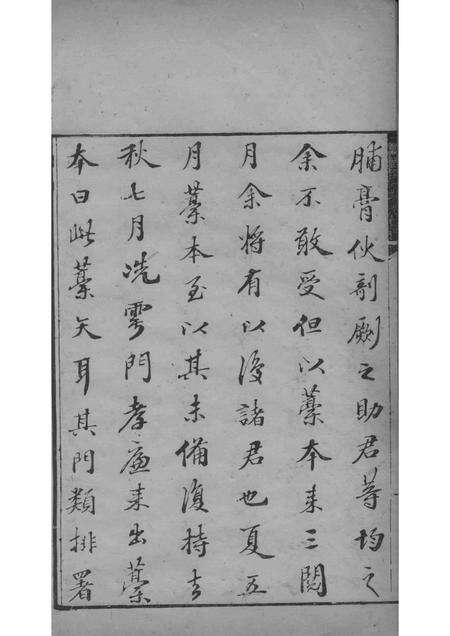 脯膏伙剞劂之助君等均之
余不敢受但以藁本来三閲
月余将有以復諸君也夏五
月藁本至以其未備復持去
秋七月冼雩門孝廉来出藁
本曰此藁矢耳其門類排署